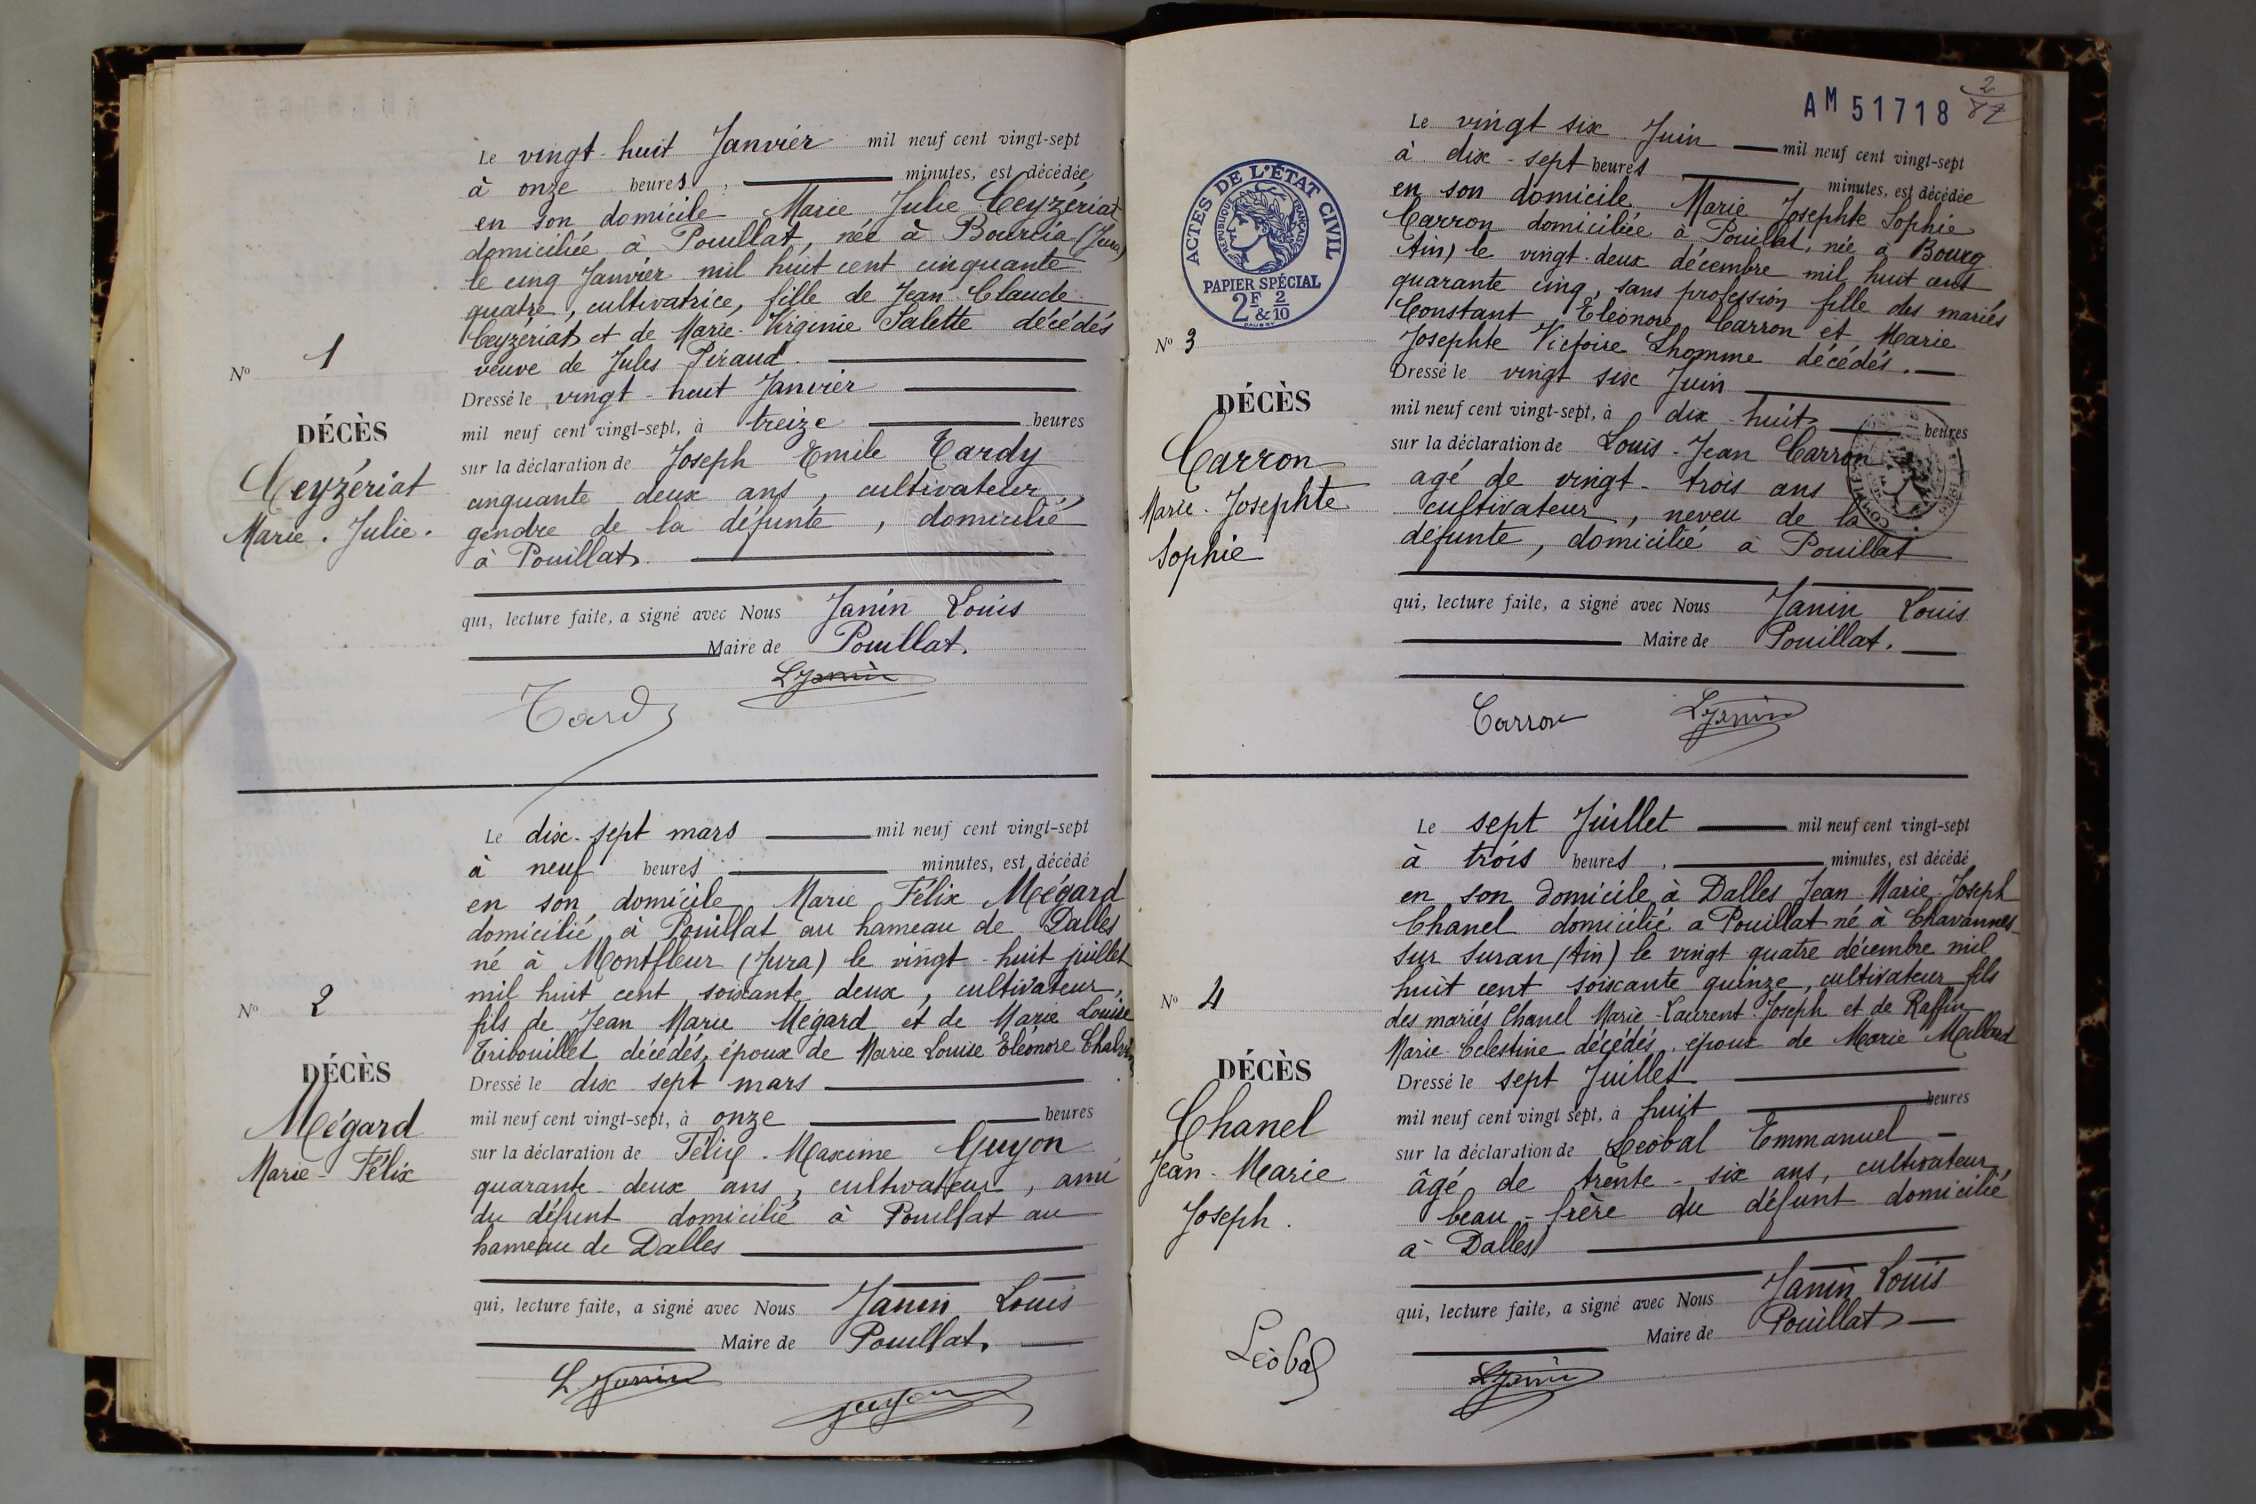 Le vingt-huit Janvier mil neuf cent vingt-sept
à onze heures, minutes, est décédée
en son domicile Marie Julie Ceyzériat
domiciliée à Pouillat, née à Bourcia (Jura)
le cinq Janvier mil huit cent cinquante
quatre, cultivatrice, fille de Jean Claude
Ceyzériat et de Marie-Virginie Salette décédés
veuve de Jules Piraud.
N° 1
Dressé le vingt-huit Janvier
DÉCÈS
mil neuf cent vingt-sept, à treize heures
sur la déclaration de Joseph Emile Tardy
Ceyzériat
cinquante deux ans, cultivateur,
Marie. Julie.
gendre de la défunte, domicilié
à Pouillat.
qui, lecture faite, a signé avec Nous Janin Louis
Maire de Pouillat.
L Janin
Tardy
Le dix-sept mars mil neuf cent vingt-sept
à neuf heures minutes, est décédé
en son domicile, Marie Félix Mégard
domicilié à Pouillat au hameau de Dalles
né à Montfleur (Jura) le vingt-huit juillet
mil huit cent soixante deux, cultivateur,
N° 2
fils de Jean Marie Mégard et de Marie Louise
Tribouillet décédés, époux de Marie Louise Eléonore
DÉCÈS
Dressé le dix sept mars
Mégard
mil neuf cent vingt-sept, à onze heures
Marie-Félix
sur la déclaration de Félix-Maxime Guyon
quarante-deux ans, cultivateur, ami
du défunt domicilié à Pouillat au
hameau de Dalles
qui, lecture faite, a signé avec Nous Janin Louis
Maire de Pouillat.
L Janin
guyon
AM 51718
2
Le vingt six Juin mil neuf cent vingt-sept
à dix-sept heures minutes, est décédée
en son domicile Marie Josephte Sophie
Carron domiciliée à Pouillat, née à Bourg
Ain) le vingt-deux décembre mil huit cent
quarante cinq, sans profession fille des mariés
Constant Eléonore Carron et Marie
Josephte Victoire Lhomme décédés.
ACTES DE L'ÉTAT CIVIL
RÉPUBLIQUE FRANÇAISE
PAPIER SPÉCIAL
2F & 2/10
N° 3
Dressé le vingt six Juin
DÉCÈS
mil neuf cent vingt-sept, à dix-huit heures
Carron
sur la déclaration de Louis-Jean Carron
Marie-Josephte
agé de vingt-trois ans
Sophie
cultivateur, neveu de la
défunte, domicilié à Pouillat
qui, lecture faite, a signé avec Nous Janin Louis
Maire de Pouillat.
Carron
L Janin
Le sept Juillet mil neuf cent vingt-sept
à trois heures, minutes, est décédé
en son domicile à Dalles Jean-Marie-Joseph
Chanel domicilié a Pouillat né à Chavannes-
sur Suran (Ain) le vingt quatre décembre mil
huit cent soixante quinze, cultivateur fils
N° 4
des mariés Chanel Marie-Laurent-Joseph et de Raffin
Marie-Celestine décédés, époux de Marie Maillard
DÉCÈS
Dressé le sept Juillet
Chanel
mil neuf cent vingt sept, à huit heures
Jean-Marie
Joseph.
sur la déclaration de Léobal Emmanuel
âgé de trente-six ans, cultivateur,
beau-frère du défunt domicilié
à Dalles
qui, lecture faite, a signé avec Nous Janin Louis
Maire de Pouillat
Léobal
L Janin